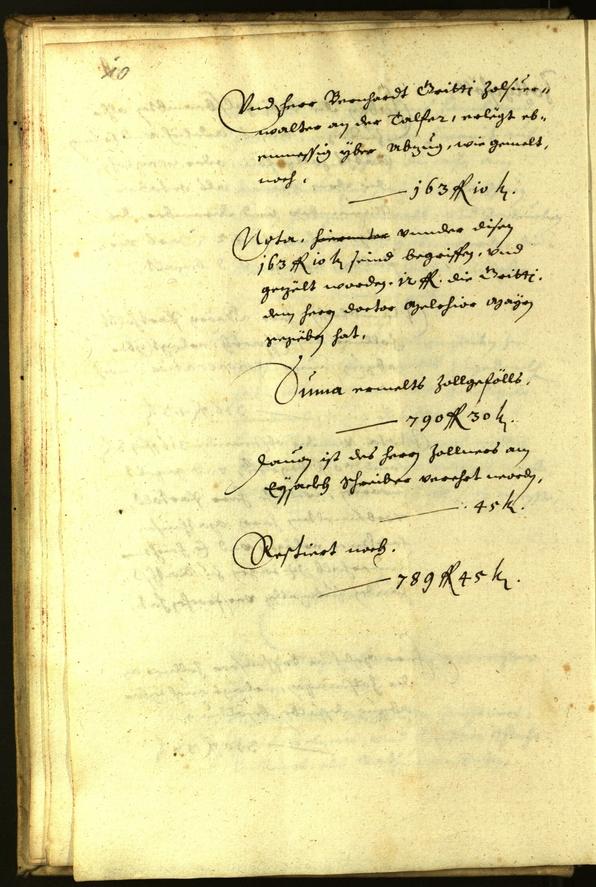 10
Vnd herr Bernhardt Gritti Zolsuer-,,
walter an der Talfer, erlegt eb-,,
enmessig yber Abzug, wie gemelt,
noch,
163 fl 10 k.
Nota, hierunter vnnder disen
163 fl 10 k seind begriffen, vnd
gezelt worden. 12 fl. die Gritti.
dem herrn doctor Melchior Mayrn
gegeben hat.
Suma ermelts Zollgefölls.
790 fl 30 k.
Dauon ist des herrn Zollners am
Eysackh Schreiber verehrt worden,
45 k.
Restiert noch.
789 fl 45 k.